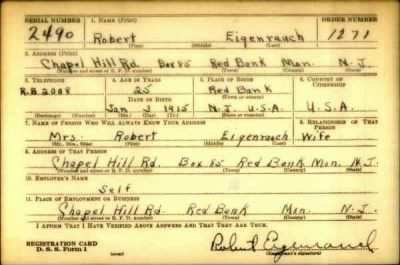 SERIAL NUMBER 1. NAME (Print) ORDER NUMBER
2490 Robert Eigenrauch 1271
(First) (Middle) (Last)
2. ADDRESS (Print)
Chapel Hill Rd. Box 85 Red Bank Mon. N.J.
(Number and street or R. F. D. number) (Town) (County) (State)
3. TELEPHONE 4. AGE IN YEARS 5. PLACE OF BIRTH 6. COUNTRY OF CITIZENSHIP
R.B 2008 25 Red Bank
DATE OF BIRTH (Town or county)
Jan 3 1915 N.J. U.S.A. U.S.A.
(Exchange) (Number) (Mo.) (Day) (Yr.) (State or country)
7. NAME OF PERSON WHO WILL ALWAYS KNOW YOUR ADDRESS 8. RELATIONSHIP OF THAT PERSON
Mrs. Robert Eigenrauch Wife
(Mr., Mrs., Miss) (First) (Middle) (Last)
9. ADDRESS OF THAT PERSON
Chapel Hill Rd. Box 85 Red Bank Mon. N.J.
(Number and street or R. F. D. number) (Town) (County) (State)
10. EMPLOYER'S NAME
Self
11. PLACE OF EMPLOYMENT OR BUSINESS
Chapel Hill Rd. Red Bank Mon. N.J.
(Number and street or R. F. D. number) (Town) (County) (State)
I AFFIRM THAT I HAVE VERIFIED ABOVE ANSWERS AND THAT THEY ARE TRUE.
REGISTRATION CARD
D. S. S. Form 1
(over)
Robert Eigenrauch
(Registrant's signature)